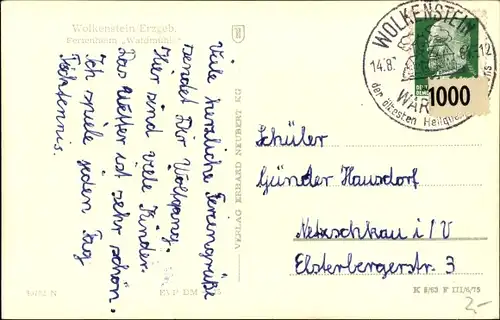 Wolkenstein Erzgeb.
Ferienheim „Waldmühle"
Viele herzliche Feriengrüße
sendet Dir Wolfgang.
Hier sind viele Kinder.
Das Wetter ist sehr schön.
Ich spiele jeden Tag
Tischtennis.
VERLAG ERHARD NEUBERT KG
WOLKENSTEIN
14.8.
-12
WAR
der ältesten Heilque
1000
Schüler
Günder Hausdorf
Netzschkau i/V
Elsterbergerstr. 3
K 8/63 F III/6/75
2,-